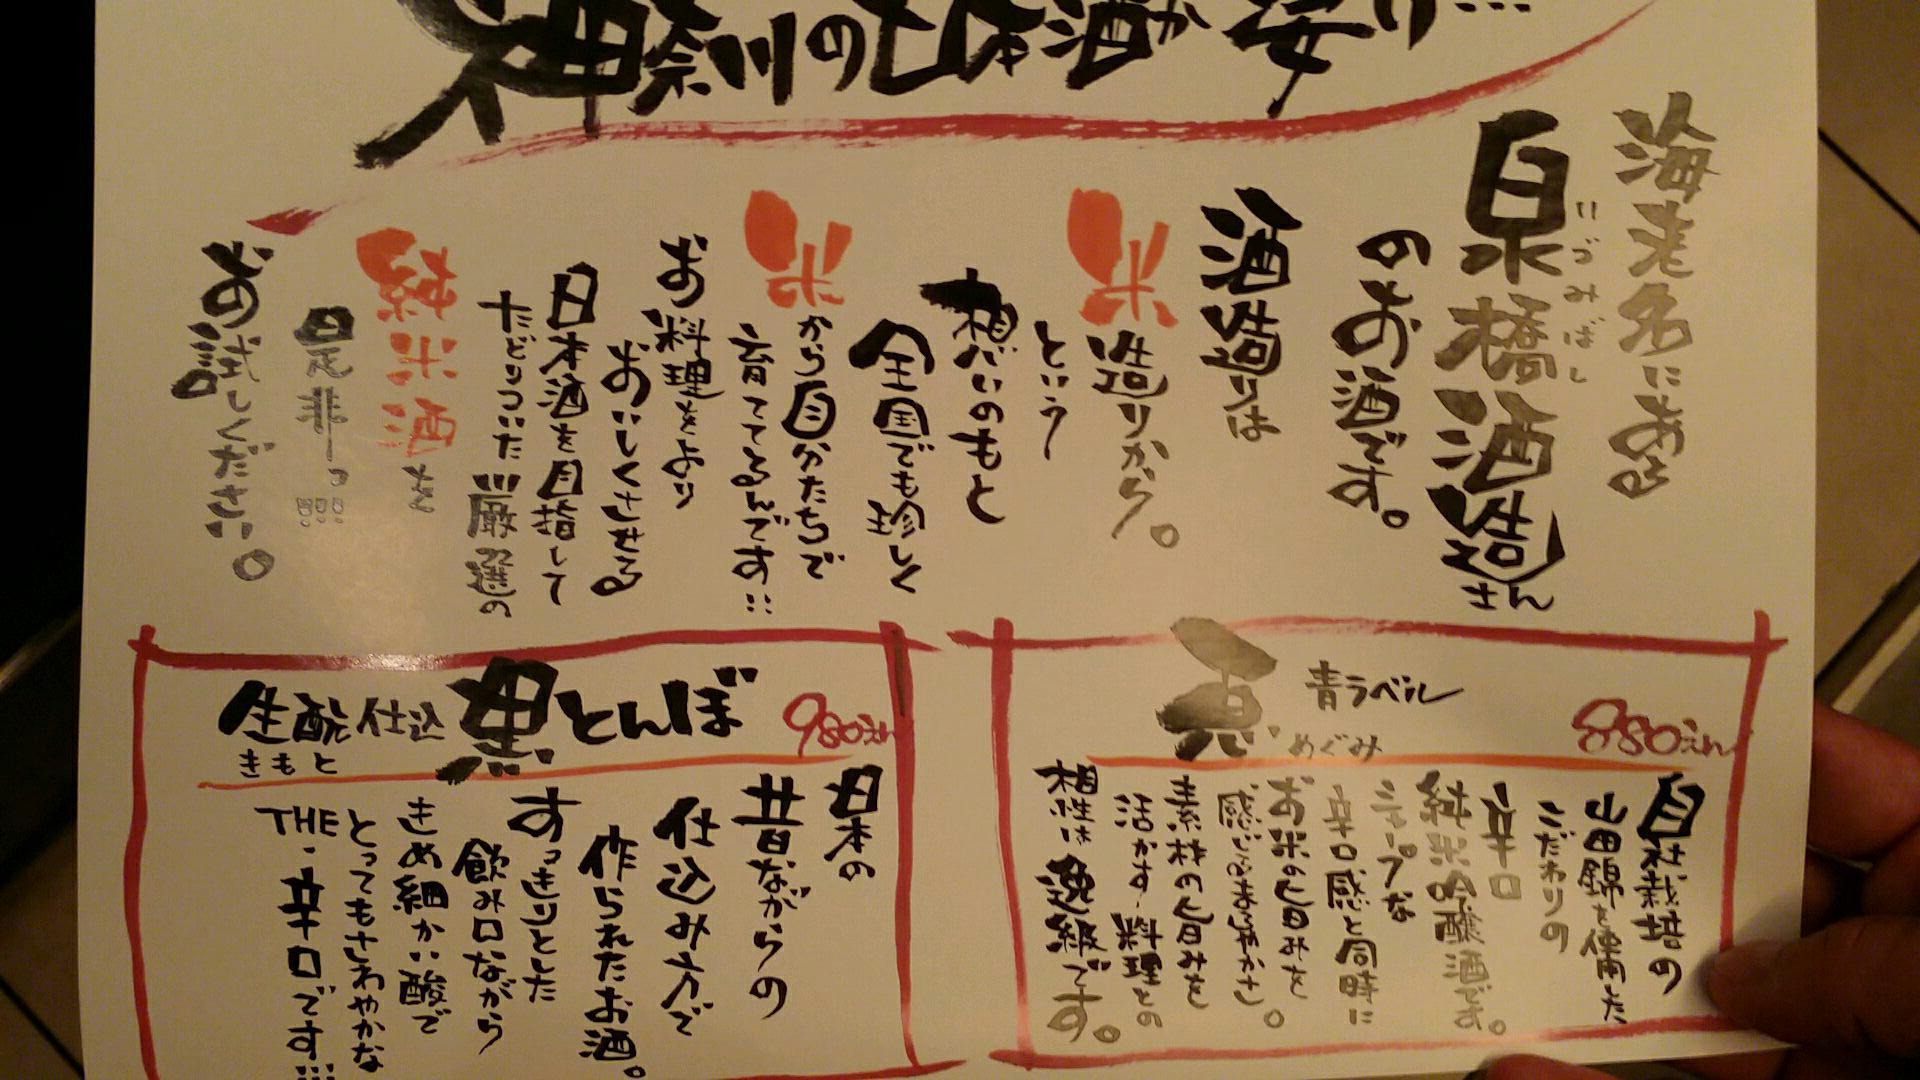 神奈川の日本酒が凄い…
海老名にある
泉橋酒造さん
いづみばし
のお酒です。
酒造りは
米造りから。
という
想いのもと
全国でも珍しく
米から自分たちで
育ててるんです!!
お料理をより
おいしくさせる
日本酒を目指して
たどりついた厳選の
純米酒を
是非っ!!!
お試しください。
恵 青ラベル 880えん
めぐみ
自社栽培の
山田錦を使用した
こだわりの
辛口
純米吟醸酒です。
シャープな
辛口感と同時に
お米の旨みを
感じるまろやかさ。
素材の旨みを
活かす料理との
相性は逸級です。
生酛仕込 黒とんぼ 980えん
きもと
日本の
昔ながらの
仕込み方で
作られたお酒。
すっきりとした
飲み口ながら
きめ細かい酸で
とってもさわやかな
THE・辛口です!!!